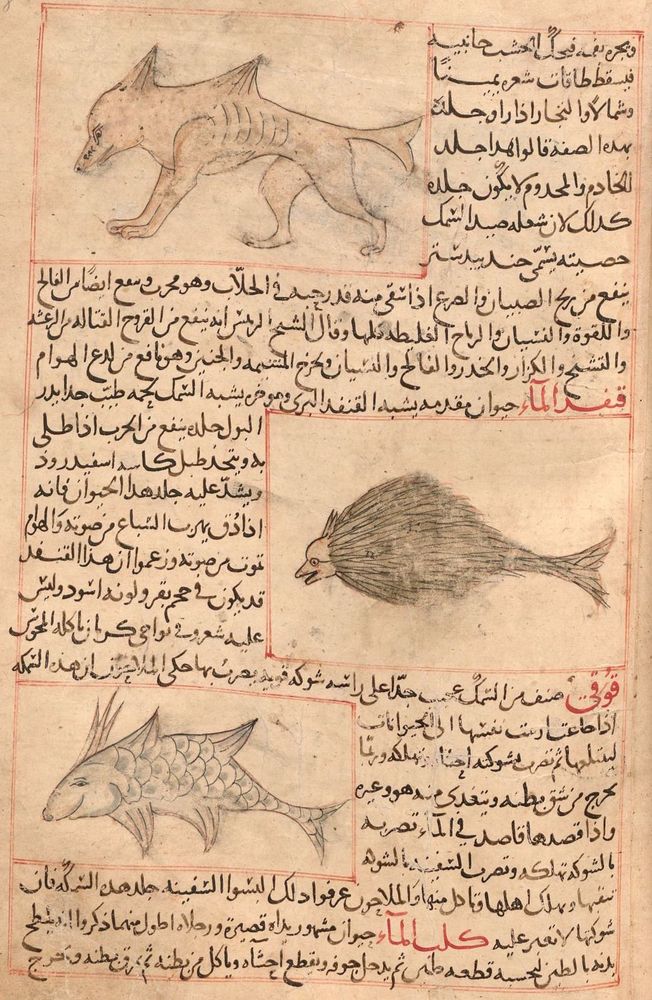 ويجره بفيه فيحك الخشب جانبيه
فيسقط طاقات شعره يمينا
وشمالا والتجار اذا راوا جلده
بهذه الصفة قالوا هذا جلد
الخادم والمخدوم لا يكون جلده
كذلك لان شغله صيد السمك
خصيته يسمى جند بيدستر
ينفع من ريح الصبيان والصرع اذا سقى منه قدر حبة في الجلاب وهو مجرب وينفع ايضا من الفالج
واللقوة والنسيان والرياح الغليظة كلها وقال الشيخ الرئيس انه ينفع من القروح القتالة من الرعشة
والتشنج والكزاز والخدر والفالج والنسيان ويخرج المشيمة والجنين وهو نافع من لدغ الهوام
قنفد المآء حيوان مقدمه يشبه القنفد البرى وموخره يشبه السمك لحمه طيب جدا يدر
البول جلده ينفع من الجرب اذا طلى
به ويتخذ طبل كاسه اسفيدروذ
ويشد عليه جلد هذا الحيوان فانه
اذا دق يهرب السباع من صوته والهوام
تموت من صوته وزعموا ان هذا القنفد
قد يكون في حجم بقر ولونه اسود وليس
عليه شعر وفي نواحى كرمان ياكله المجوس
قوقي صنف من السمك عجيب جدا على راسه شوكة قوية يضرب بها حكى الملاحون ان هذه السمكة
اذا جاعت رمت نفسها الى الحيوانات
ليبتلعها ثم تضرب بشوكته احشاءه وتهلكه وربما
يخرج من شق بطنه وتتغدى منه هو وغيره
واذا قصدها قاصد في المآء تضربه
بالشوكة تهلكه وتضرب السفينة بالشوكة
تثقبها وتهلك اهلها وتاكل منها والملاحون عرفوا ذلك البسوا السفينة جلد هذه السمكة فان
شوكتها لا تعبر عليه كلب المآء حيوان مشهور يداه قصيرة ورجلاه اطول منهما ذكروا انه يلطخ
بدنه بالطين ليحسبه قطعة طين ثم يدخل جوفه ويقطع احشاه وياكل من بطنه ثم يمزق بطنه ويخرج